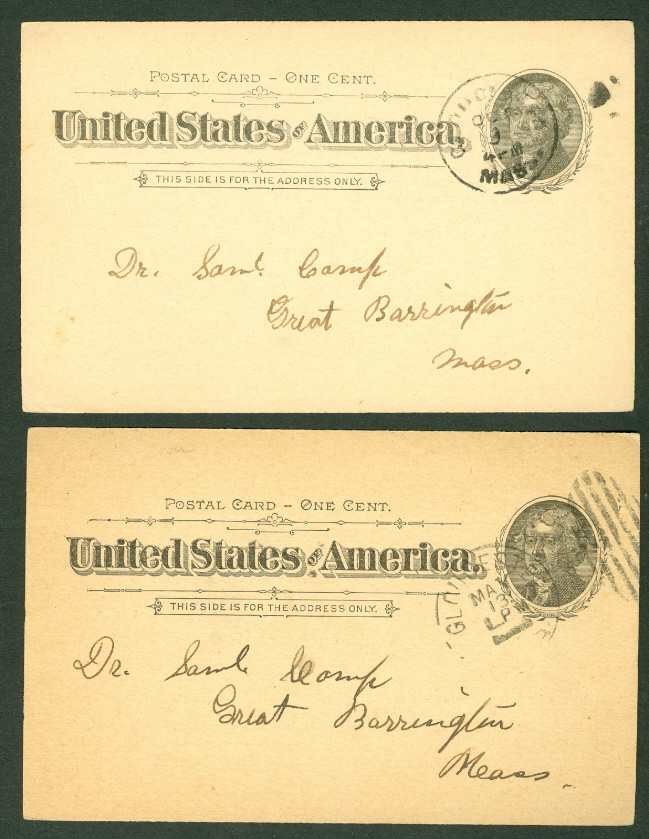 POSTAL CARD – ONE CENT.
United States of America.
THIS SIDE IS FOR THE ADDRESS ONLY.
4 PM
MASS.
Dr. Saml. Camp
Great Barrington
Mass.
POSTAL CARD – ONE CENT.
United States of America.
THIS SIDE IS FOR THE ADDRESS ONLY.
Dr. Saml. Camp
Great Barrington
Mass.